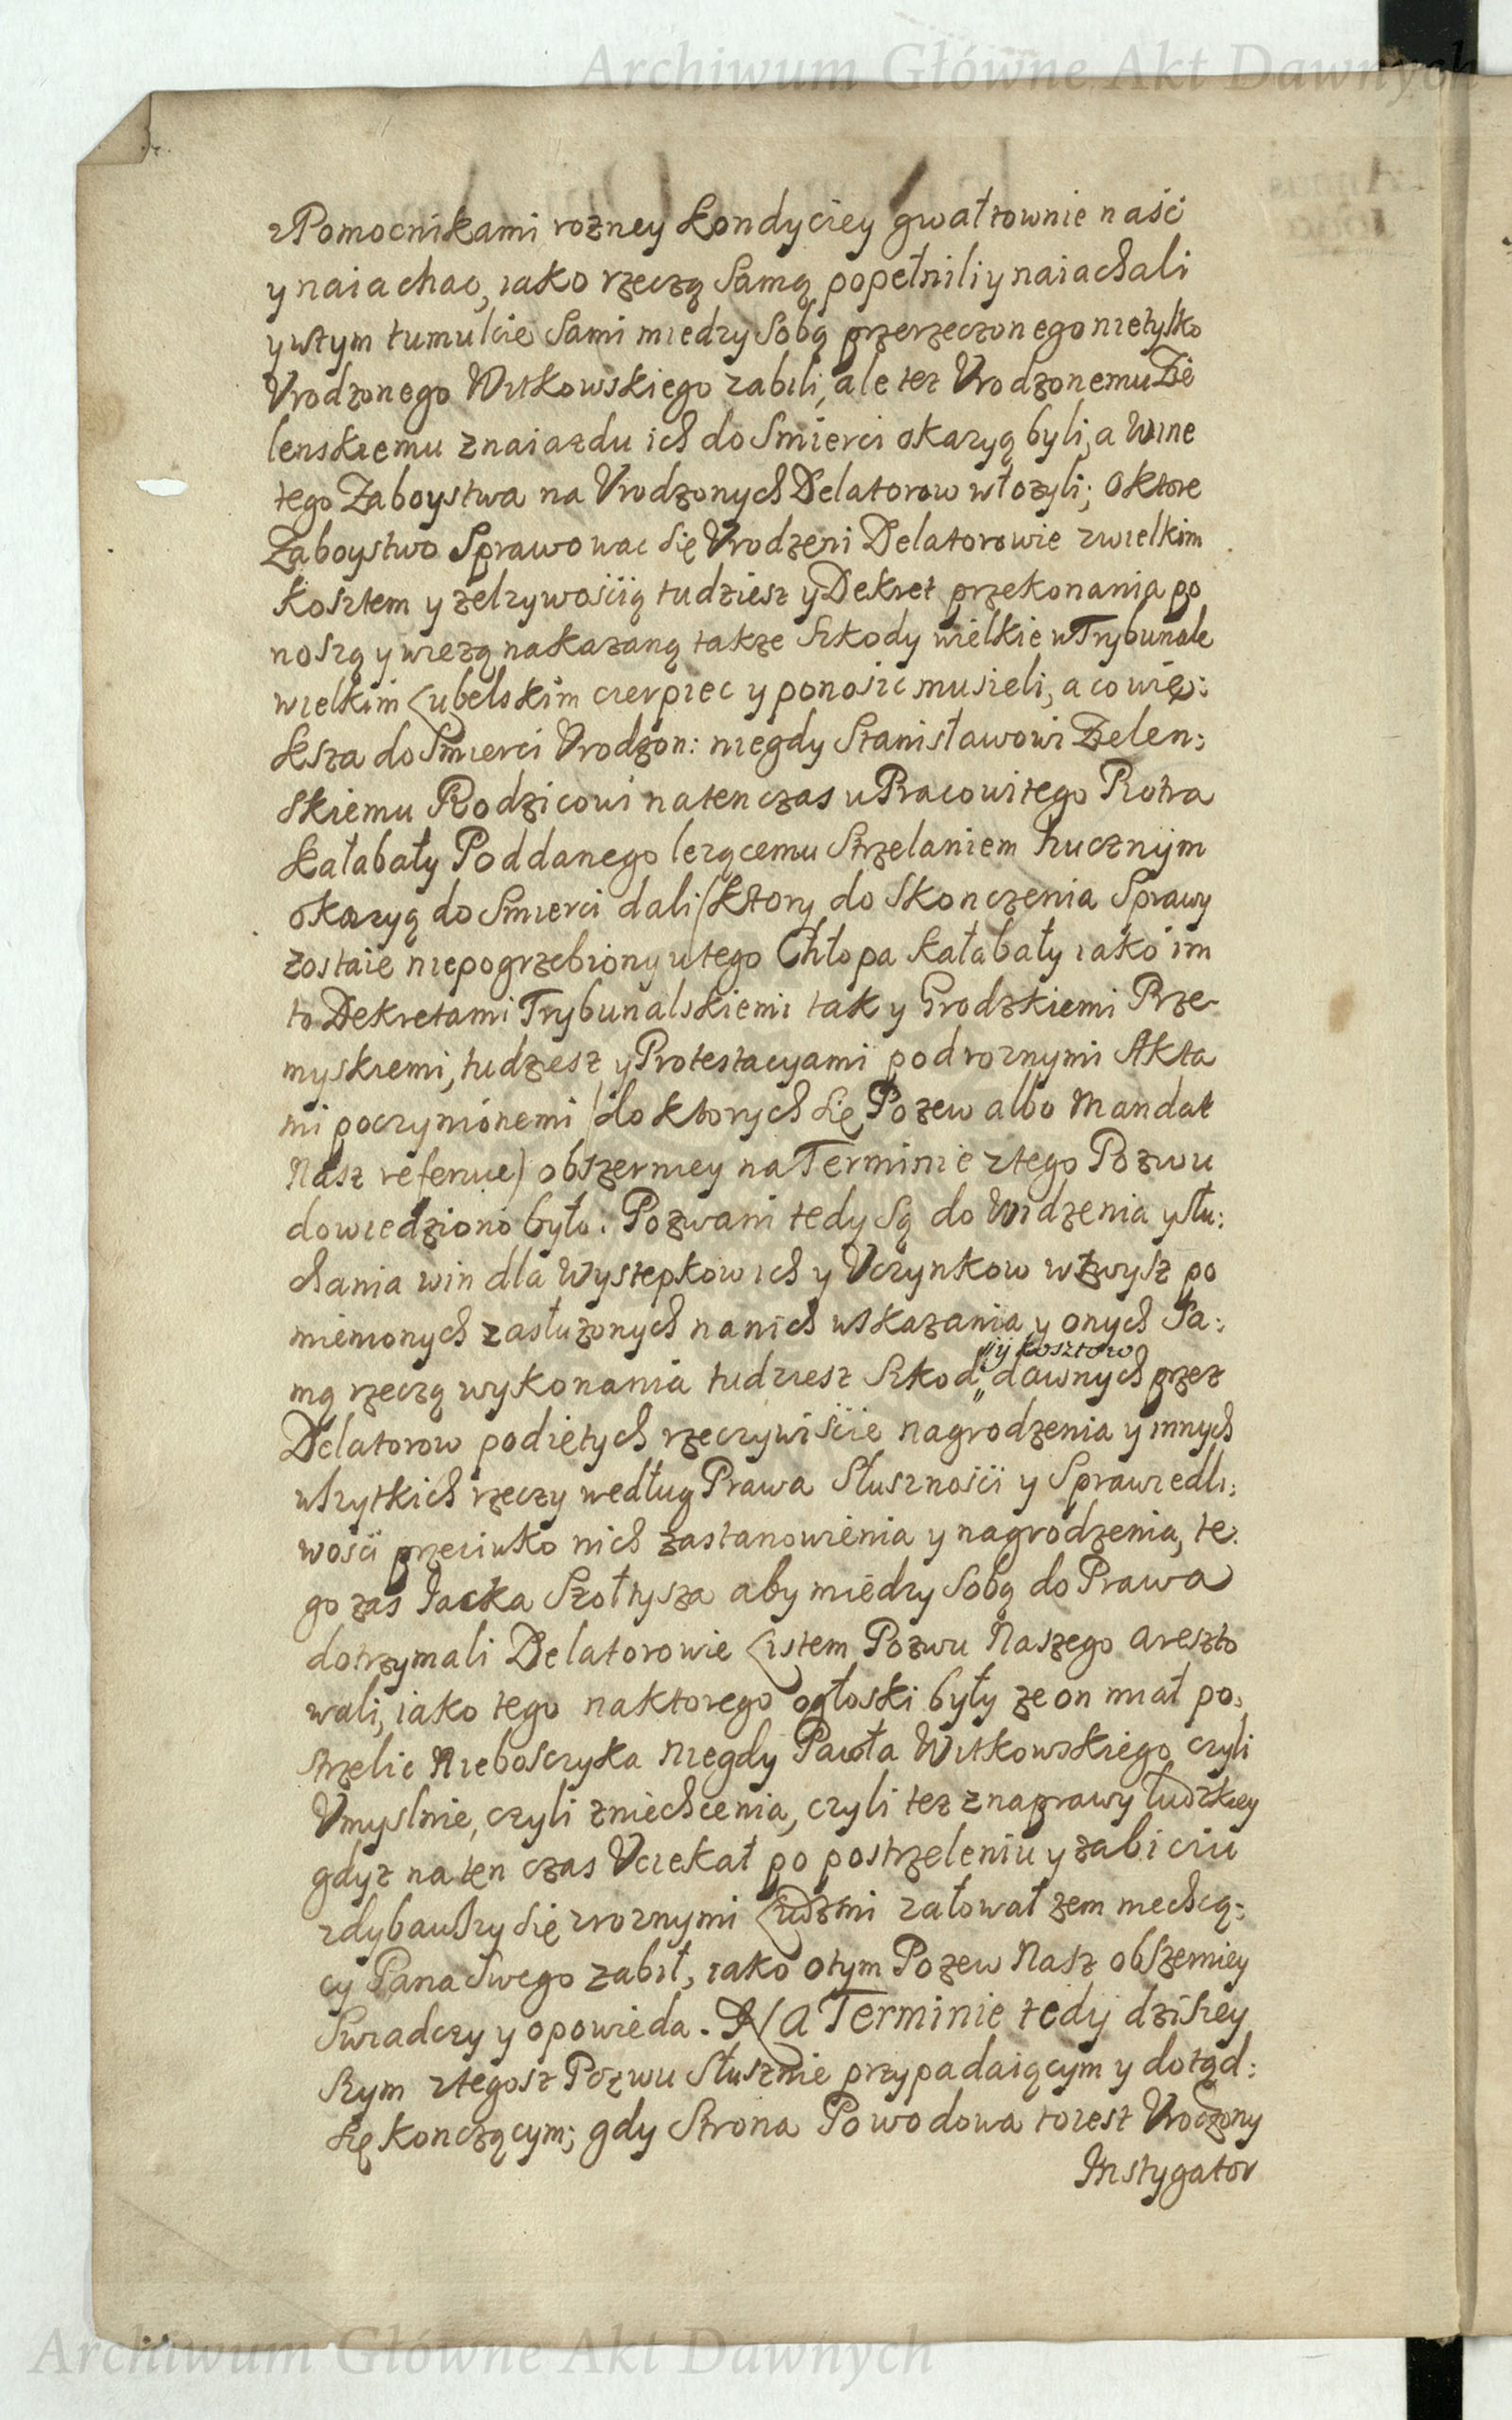 Archiwum Główne Akt Dawnych
z Pomocnikami rozney kondyciey gwałtownie naść
y naiachac, iako rzeczą samą popełnili y naiachali
y wtym tumulcie sami miedzy sobą przerzeczonego nietylko
Vrodzonego Witkowskiego zabili, ale tez Vrodzonemu Zie
lenskiemu znaiazdu ich do smierci okazyą byli, a Wine
tego Zaboystwa na Vrodzonych Delatorow włozyli; oktore
Zaboystwo sprawowac się Vrodzeni Delatorowie zwielkim
kosztem y zelzywoscią tudziesz y Dekret przekonania po
noszą y wiezą nakazaną takze szkody wielkie w Trybunale
wielkim Lubelskim cierpiec y ponosic musieli, a co wię:
ksza do Smierci Vrodzon: niegdy Stanisławowi Zielen:
skiemu Rodzicowi natenczas u Pracowitego Piotra
Kałabały Poddanego lezącemu strzelaniem hucznym
okazyą do Smierci dali /ktory do skonczenia Sprawy
zostaie niepogrzebiony utego Chłopa Kałabały iako im
to Dekretami Trybunalskiemi tak y Grodzkiemi Prze
myskiemi, tudzesz y Protestacyami pod roznymi Akta
mi poczynionemi /do ktorych się Pozew albo Mandat
Nasz referuie) obszerniey na Terminie ztego Pozwu
dowiedziono było: Pozwani tedy są do Widzenia y słu:
chania win dla Wystepkow ich y Vczynkow wzwysz po
mienionych zasłuzonych nanich wskazania y onych Sa:
mą rzeczą wykonania tudziesz szkod " y kosztow " dawnych przez
Delatorow podiętych rzeczywiście nagrodzenia y innych
wszytkich rzeczy według Prawa Słusznosci y Sprawiedli:
wosci przeciwko nich zastanowienia y nagrodzenia, te:
go zas Jacka Szołtysza aby miedzy sobą do Prawa
dotrzymali Delatorowie Listem Pozwu Naszego areszto
wali, iako tego naktorego ogłoski były ze on miał po:
strzelic Nieboszczyka Niegdy Pawła Witkowskiego czyli
Vmyslnie, czyli zniechcenia, czyli tez znaprawy ludzkiey
gdyz na ten czas Vciekał po postrzeleniu y zabiciu
zdybawszy się zroznymi Ludzmi załował zem niechcą:
cy Pana swego zabił, iako otym Pozew Nasz obszerniey
swiadczy y opowieda. Na Terminie tedy dzisiey
szym ztegosz Pozwu Słusznie przypadaiącym y dotąd:
się konczącym; gdy Strona Powodowa toiest Vrodzony
Instygator
Archiwum Główne Akt Dawnych